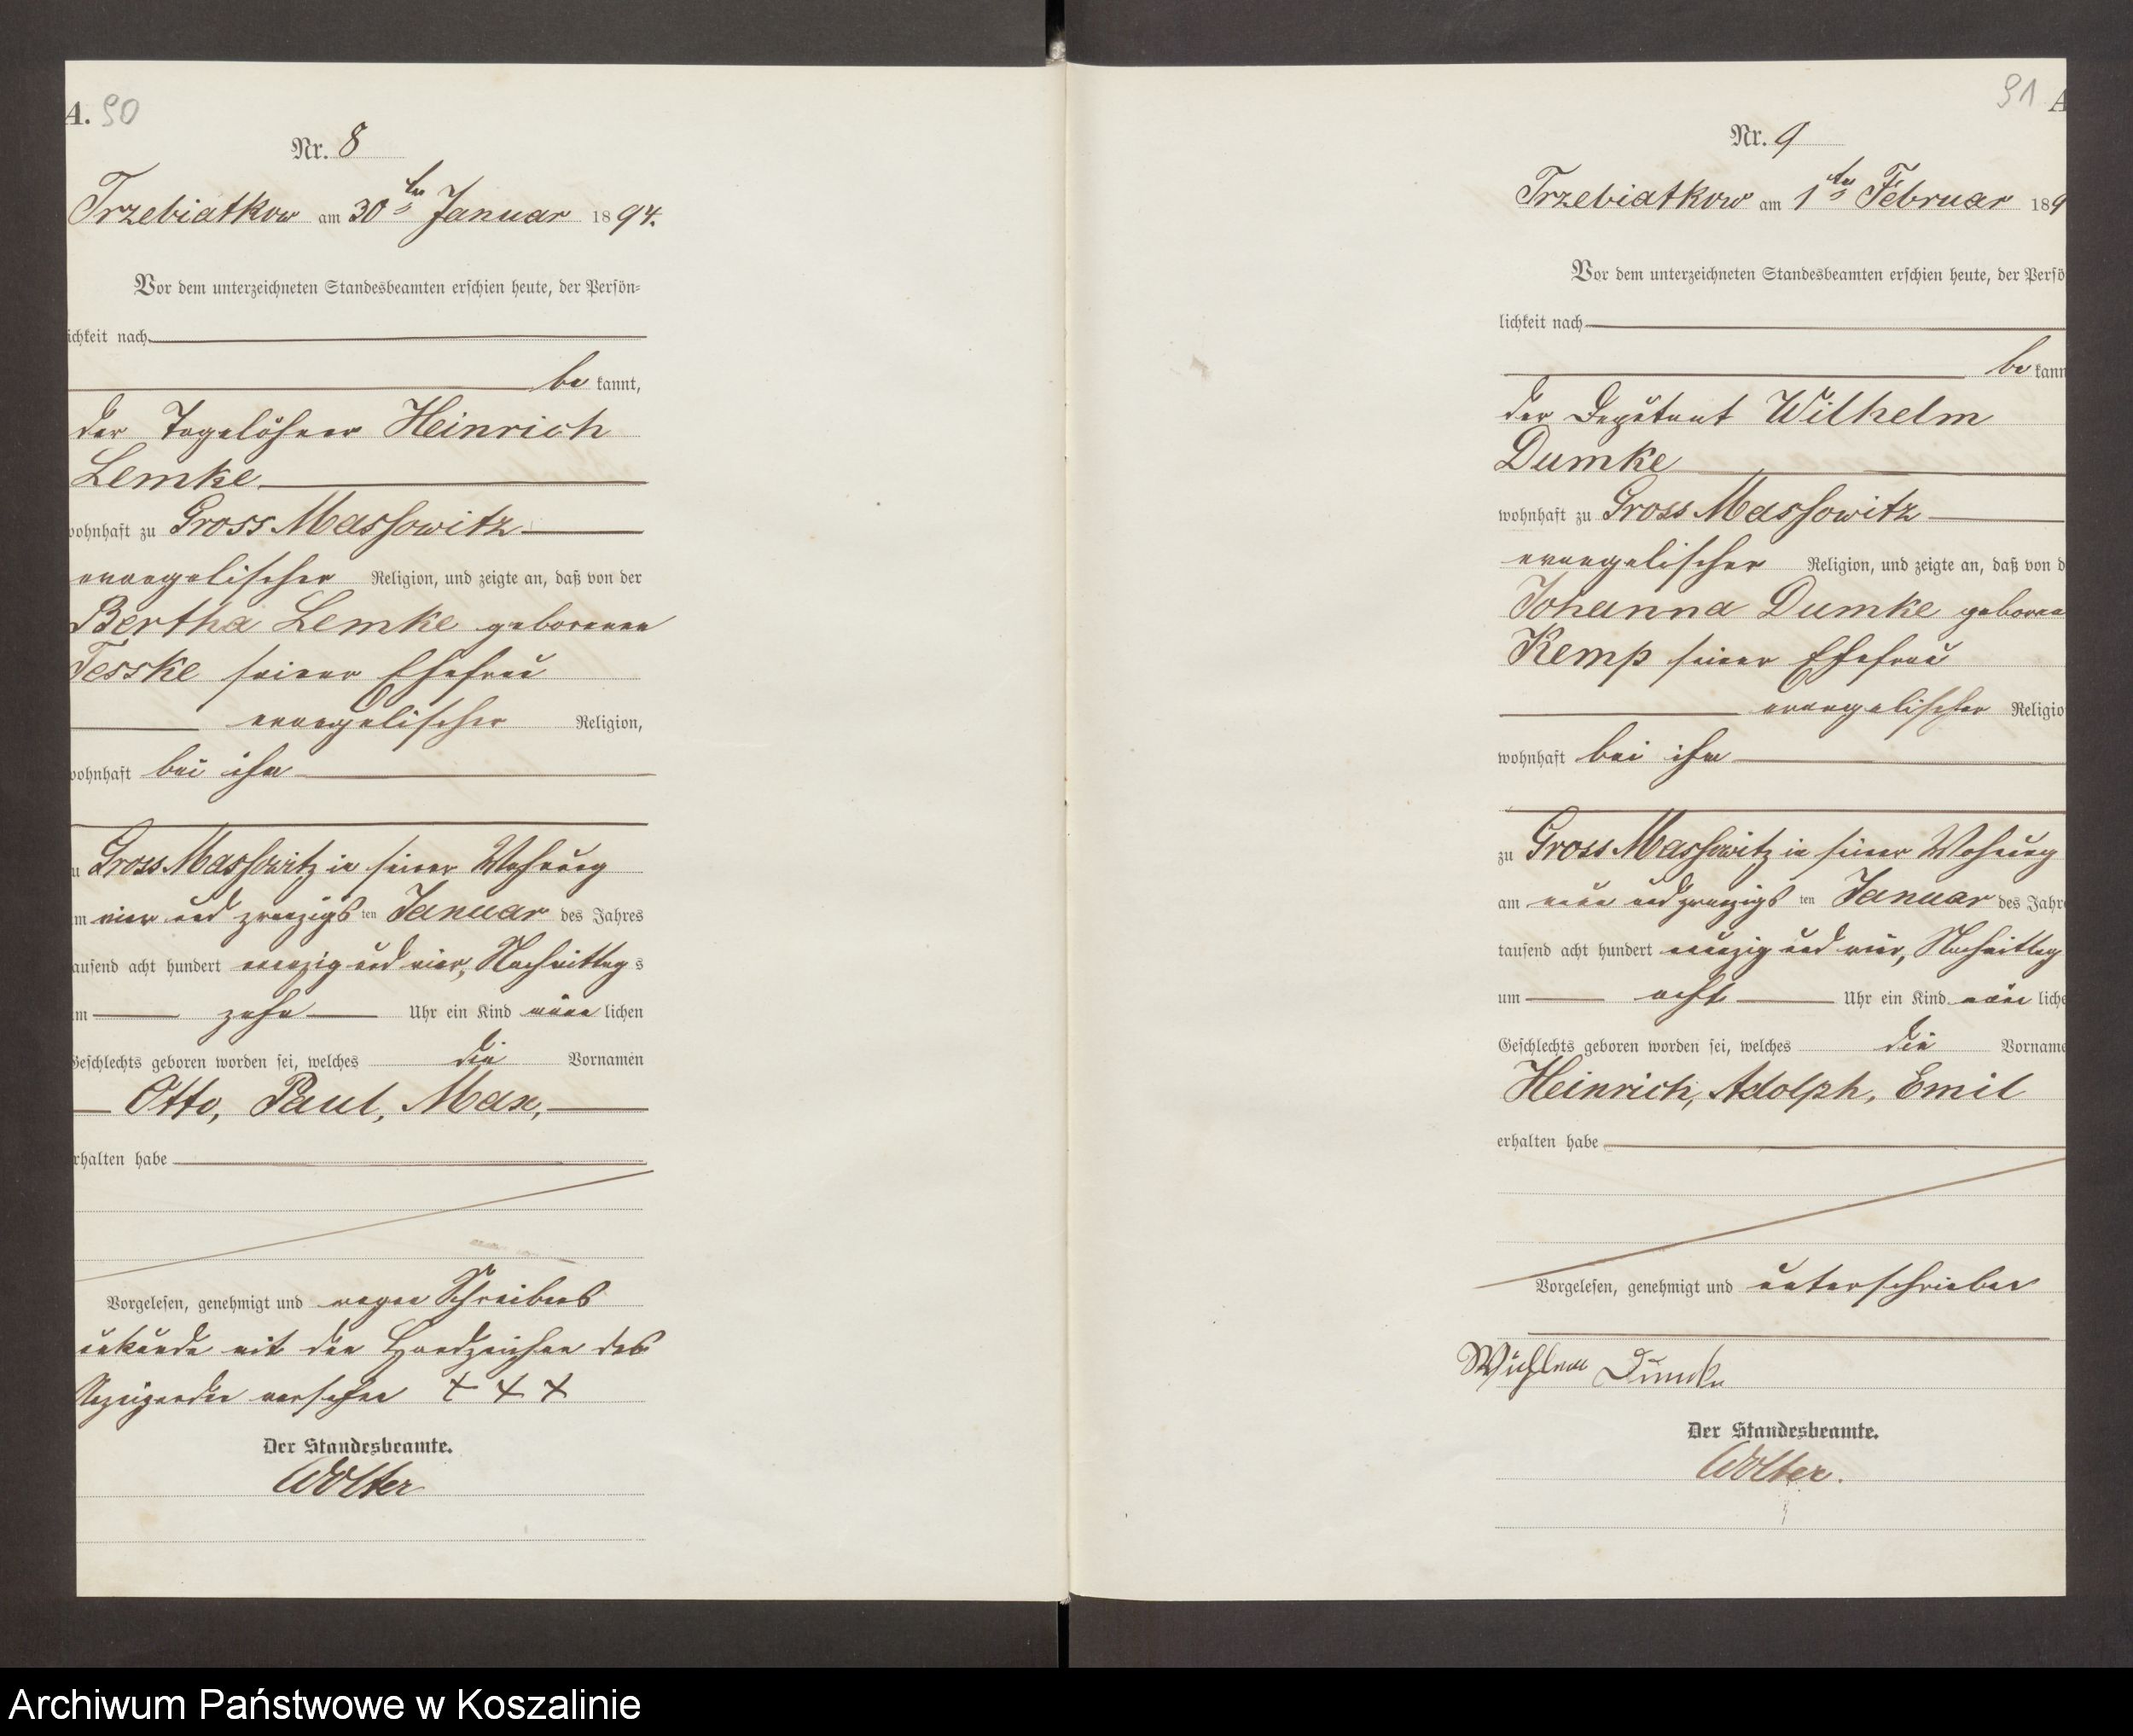 A. 90
Nr. 8
Trzebiatkow am 30ten Januar 1894.
Vor dem unterzeichneten Standesbeamten erschien heute, der Persön=
ichkeit nach
be kannt,
der Tagelöhner Heinrich
Lemke
wohnhaft zu Gross Massowitz
evangelischer Religion, und zeigte an, daß von der
Bertha Lemke geborenen
Tesske seiner Ehefrau
evangelischer Religion,
wohnhaft bei ihm
u Gross Massowitz in seiner Wohnung
m vier und zwanzigsten Januar des Jahres
ausend acht hundert neunzig und vier, Nachmittags
m zehn Uhr ein Kind männlichen
Geschlechts geboren worden sei, welches die Vornamen
Otto, Paul, Max,
rhalten habe
Vorgelesen, genehmigt und wegen Schreibens
unkunde mit den Handzeichen des
Anzeigenden versehen + + +
Der Standesbeamte.
Wolter
91 A
Nr. 9
Trzebiatkow am 1ten Februar 189
Vor dem unterzeichneten Standesbeamten erschien heute, der Persö
lichkeit nach
be kann
der Deputant Wilhelm
Dumke
wohnhaft zu Gross Massowitz
evangelischer Religion, und zeigte an, daß von d
Johanna Dumke geborene
Kemp seiner Ehefrau
evangelischer Religio
wohnhaft bei ihm
zu Gross Massowitz in seiner Wohnung
am neun und zwanzigsten Januar des Jahre
tausend acht hundert neunzig und vier, Nachmittag
um acht Uhr ein Kind männliche
Geschlechts geboren worden sei, welches die Vorname
Heinrich, Adolph, Emil
erhalten habe
Vorgelesen, genehmigt und unterschrieben
Wilhelm Dumke
Der Standesbeamte.
Wolter.
Archiwum Państwowe w Koszalinie